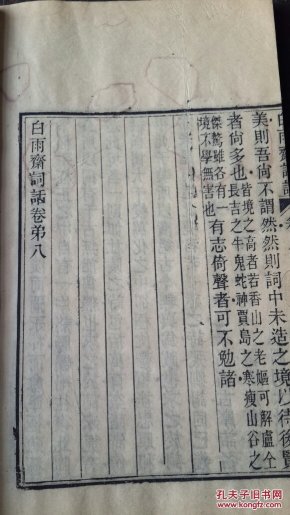 白雨齋詞話
美則吾尚不謂然然則詞中未造之境以待後賢
者尚多也皆境之高者若香山之老嫗可解盧仝
長吉之牛鬼蛇神賈島之寒瘦山谷之
傑驁雖各有一
境不學無害也
有志倚聲者可不勉諸
白雨齋詞話卷弟八
孔夫子旧书网